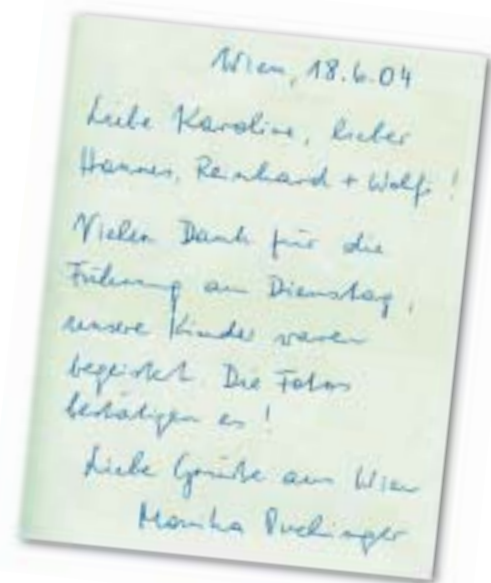 Wien, 18.6.04
Liebe Karoline, lieber
Hannes, Reinhard + Wolfi!
Vielen Dank für die
Führung am Dienstag,
unsere Kinder waren
begeistert. Die Fotos
bestätigen es!
Liebe Grüße aus Wien
Monika Puchinger